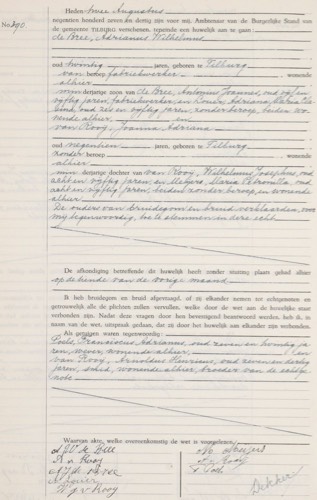 No. 290.
Heden twee Augustus
negentien honderd zeven en dertig zijn voor mij, Ambtenaar van den Burgerlijke Stand van
de gemeente TILBURG verschenen, teneinde een huwelijk aan te gaan:
de Bree, Adrianus Wilhelmus
oud twintig jaren, geboren te Tilburg
van beroep fabriekwerker wonende
alhier
minderjarige zoon van de Bree, Antonius Joannes, oud
vijftig jaren, fabriekwerker, en Adriana Maria
oud zes en vijftig jaren, zonder beroep, beiden wo-
nende alhier en
van Rooy, Joanna Adriana
oud negentien jaren, geboren te Tilburg
zonder beroep wonende
alhier
minderjarige dochter van van Rooy, Wilhelmus Josephus, oud
acht en vijftig jaren, en Maria Petronella, oud
acht en vijftig jaren, beiden zonder beroep, en wonende
alhier
De ouders van bruidegom en bruid verklaarden, voor
mij tegenwoordig, toe te stemmen in deze echt
De afkondiging betreffende dit huwelijk heeft zonder stuiting plaats gehad alhier
op de van de vorige maand
Ik heb bruidegom en bruid afgevraagd, of zij elkander nemen tot echtgenooten en
getrouwelijk alle de plichten zullen vervullen, welke door de wet aan de huwelijke staat
verbonden zijn. Nadat deze vragen door hen bevestigend beantwoord werden, heb ik, in
naam van de wet, uitspraak gedaan, dat zij door het huwelijk aan elkander zijn verbonden.
Als getuigen waren tegenwoordig:
Franciscus Adrianus, oud zeven en twintig ja-
ren, wever, wonende alhier, en
van Rooy, Arnoldus Henricus, oud zeven en dertig
jaren, wonende alhier, broeder van de echtge-
note
Waarvan akte, welke overeenkomstig de wet is voorgelezen.
A. W. de Bree
J. A. v Rooy
A. J. de Bree
W. J. v. Rooy
Dekker